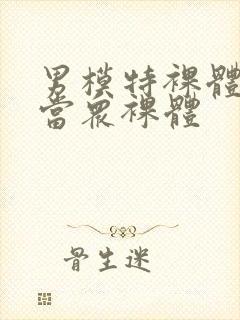 男模特裸體
當眾裸體
骨生迷